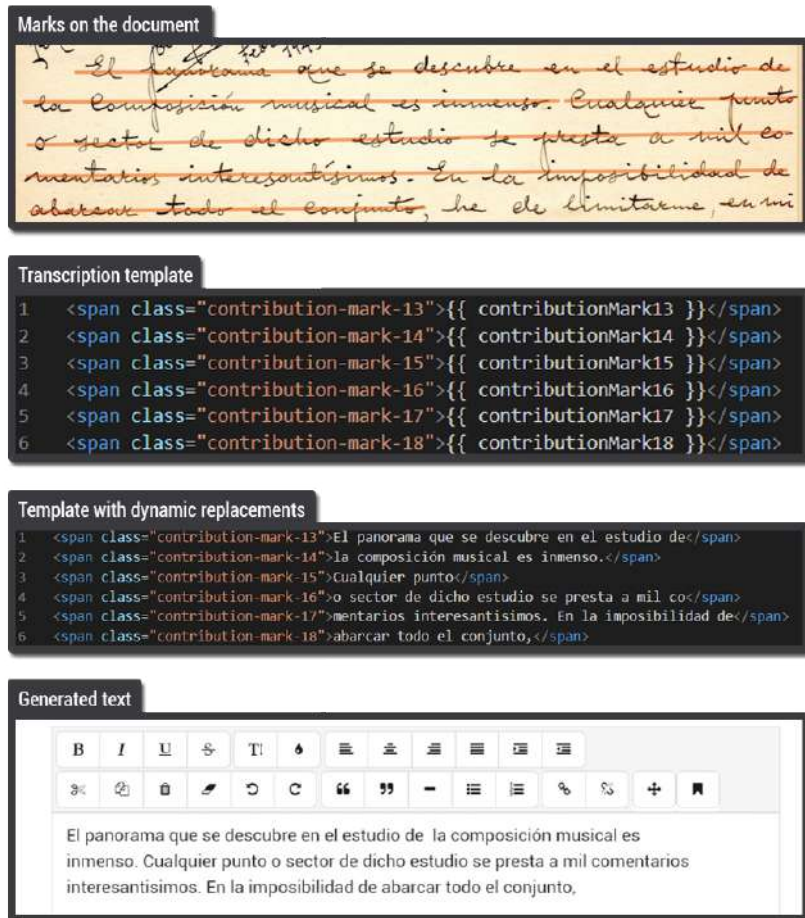 Marks on the document
feb 1945
El panorama que se descubre en el estudio de
la Composición musical es inmenso. Cualquier punto
o sector de dicho estudio se presta a mil co-
mentarios interesantísimos. En la imposibilidad de
abarcar todo el conjunto, he de limitarme, en mi
Transcription template
1 <span class="contribution-mark-13">{{ contributionMark13 }}</span>
2 <span class="contribution-mark-14">{{ contributionMark14 }}</span>
3 <span class="contribution-mark-15">{{ contributionMark15 }}</span>
4 <span class="contribution-mark-16">{{ contributionMark16 }}</span>
5 <span class="contribution-mark-17">{{ contributionMark17 }}</span>
6 <span class="contribution-mark-18">{{ contributionMark18 }}</span>
Template with dynamic replacements
1 <span class="contribution-mark-13">El panorama que se descubre en el estudio de</span>
2 <span class="contribution-mark-14">la composición musical es inmenso.</span>
3 <span class="contribution-mark-15">Cualquier punto</span>
4 <span class="contribution-mark-16">o sector de dicho estudio se presta a mil co</span>
5 <span class="contribution-mark-17">mentarios interesantisimos. En la imposibilidad de</span>
6 <span class="contribution-mark-18">abarcar todo el conjunto,</span>
Generated text
B I U S T
El panorama que se descubre en el estudio de la composición musical es
inmenso. Cualquier punto o sector de dicho estudio se presta a mil comentarios
interesantisimos. En la imposibilidad de abarcar todo el conjunto,